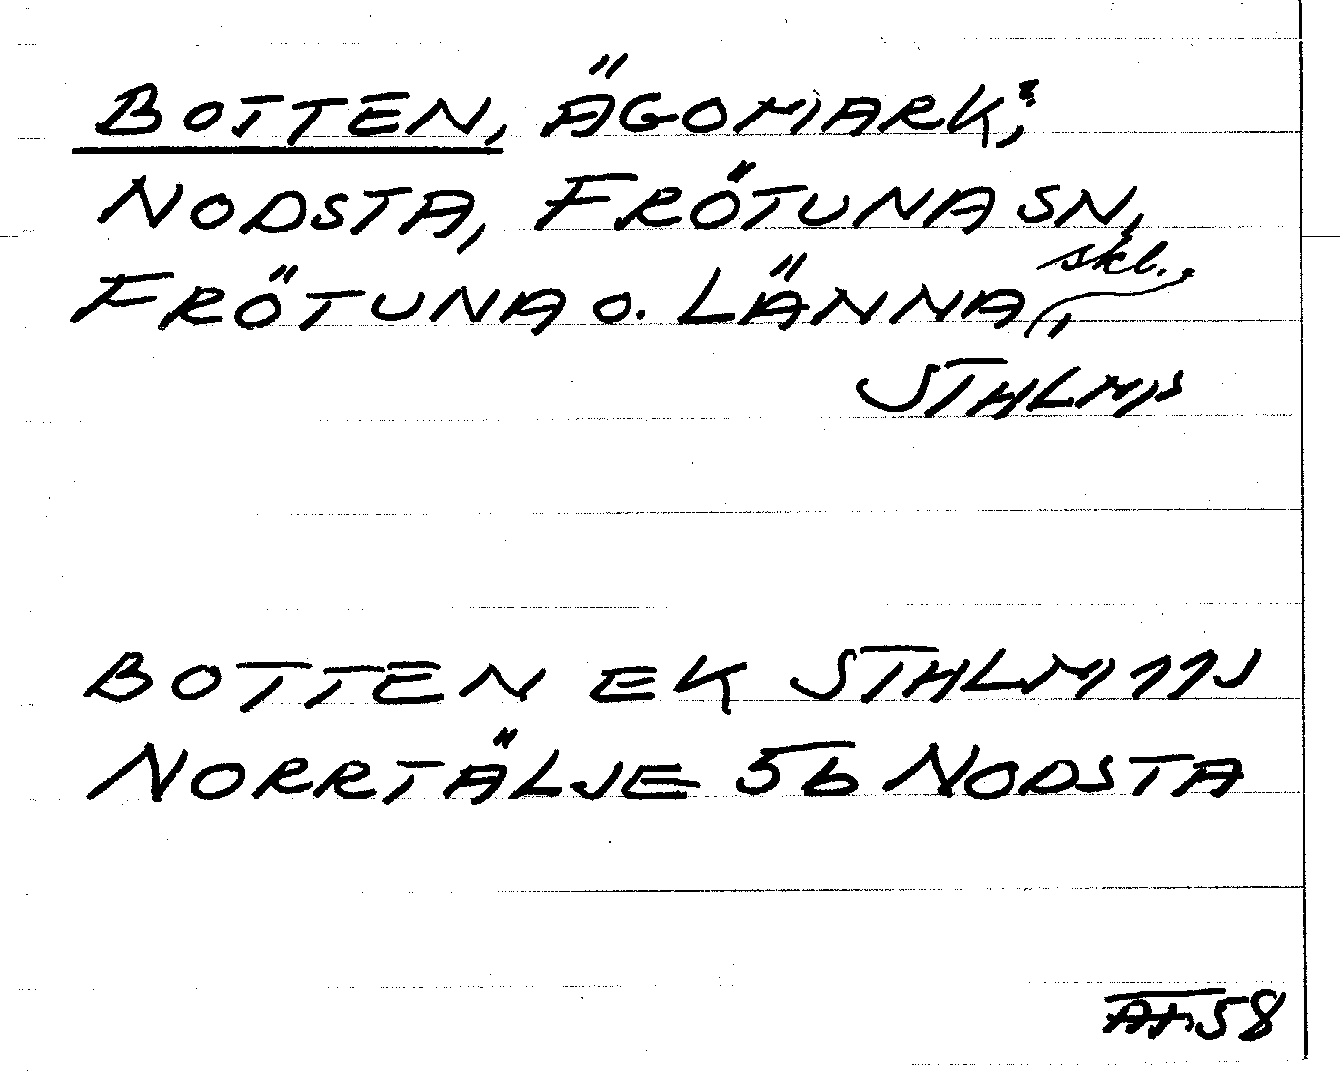 BOTTEN, ÄGOMARK;
NODSTA, FRÖTUNA SN,
FRÖTUNA O. LÄNNA, skl.,
STHLMS
BOTTEN EK STHLM 11J
NORRTÄLJE 5b NODSTA
58